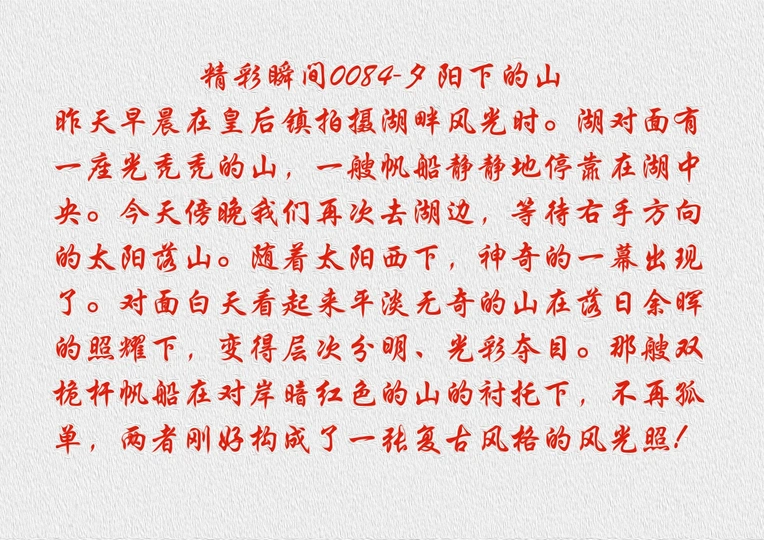 精彩瞬间0084-夕阳下的山
昨天早晨在皇后镇拍摄湖畔风光时。湖对面有
一座光秃秃的山，一艘帆船静静地停靠在湖中
央。今天傍晚我们再次去湖边，等待右手方向
的太阳落山。随着太阳西下，神奇的一幕出现
了。对面白天看起来平淡无奇的山在落日余晖
的照耀下，变得层次分明、光彩夺目。那艘双
桅杆帆船在对岸暗红色的山的衬托下，不再孤
单，两者刚好构成了一张复古风格的风光照！